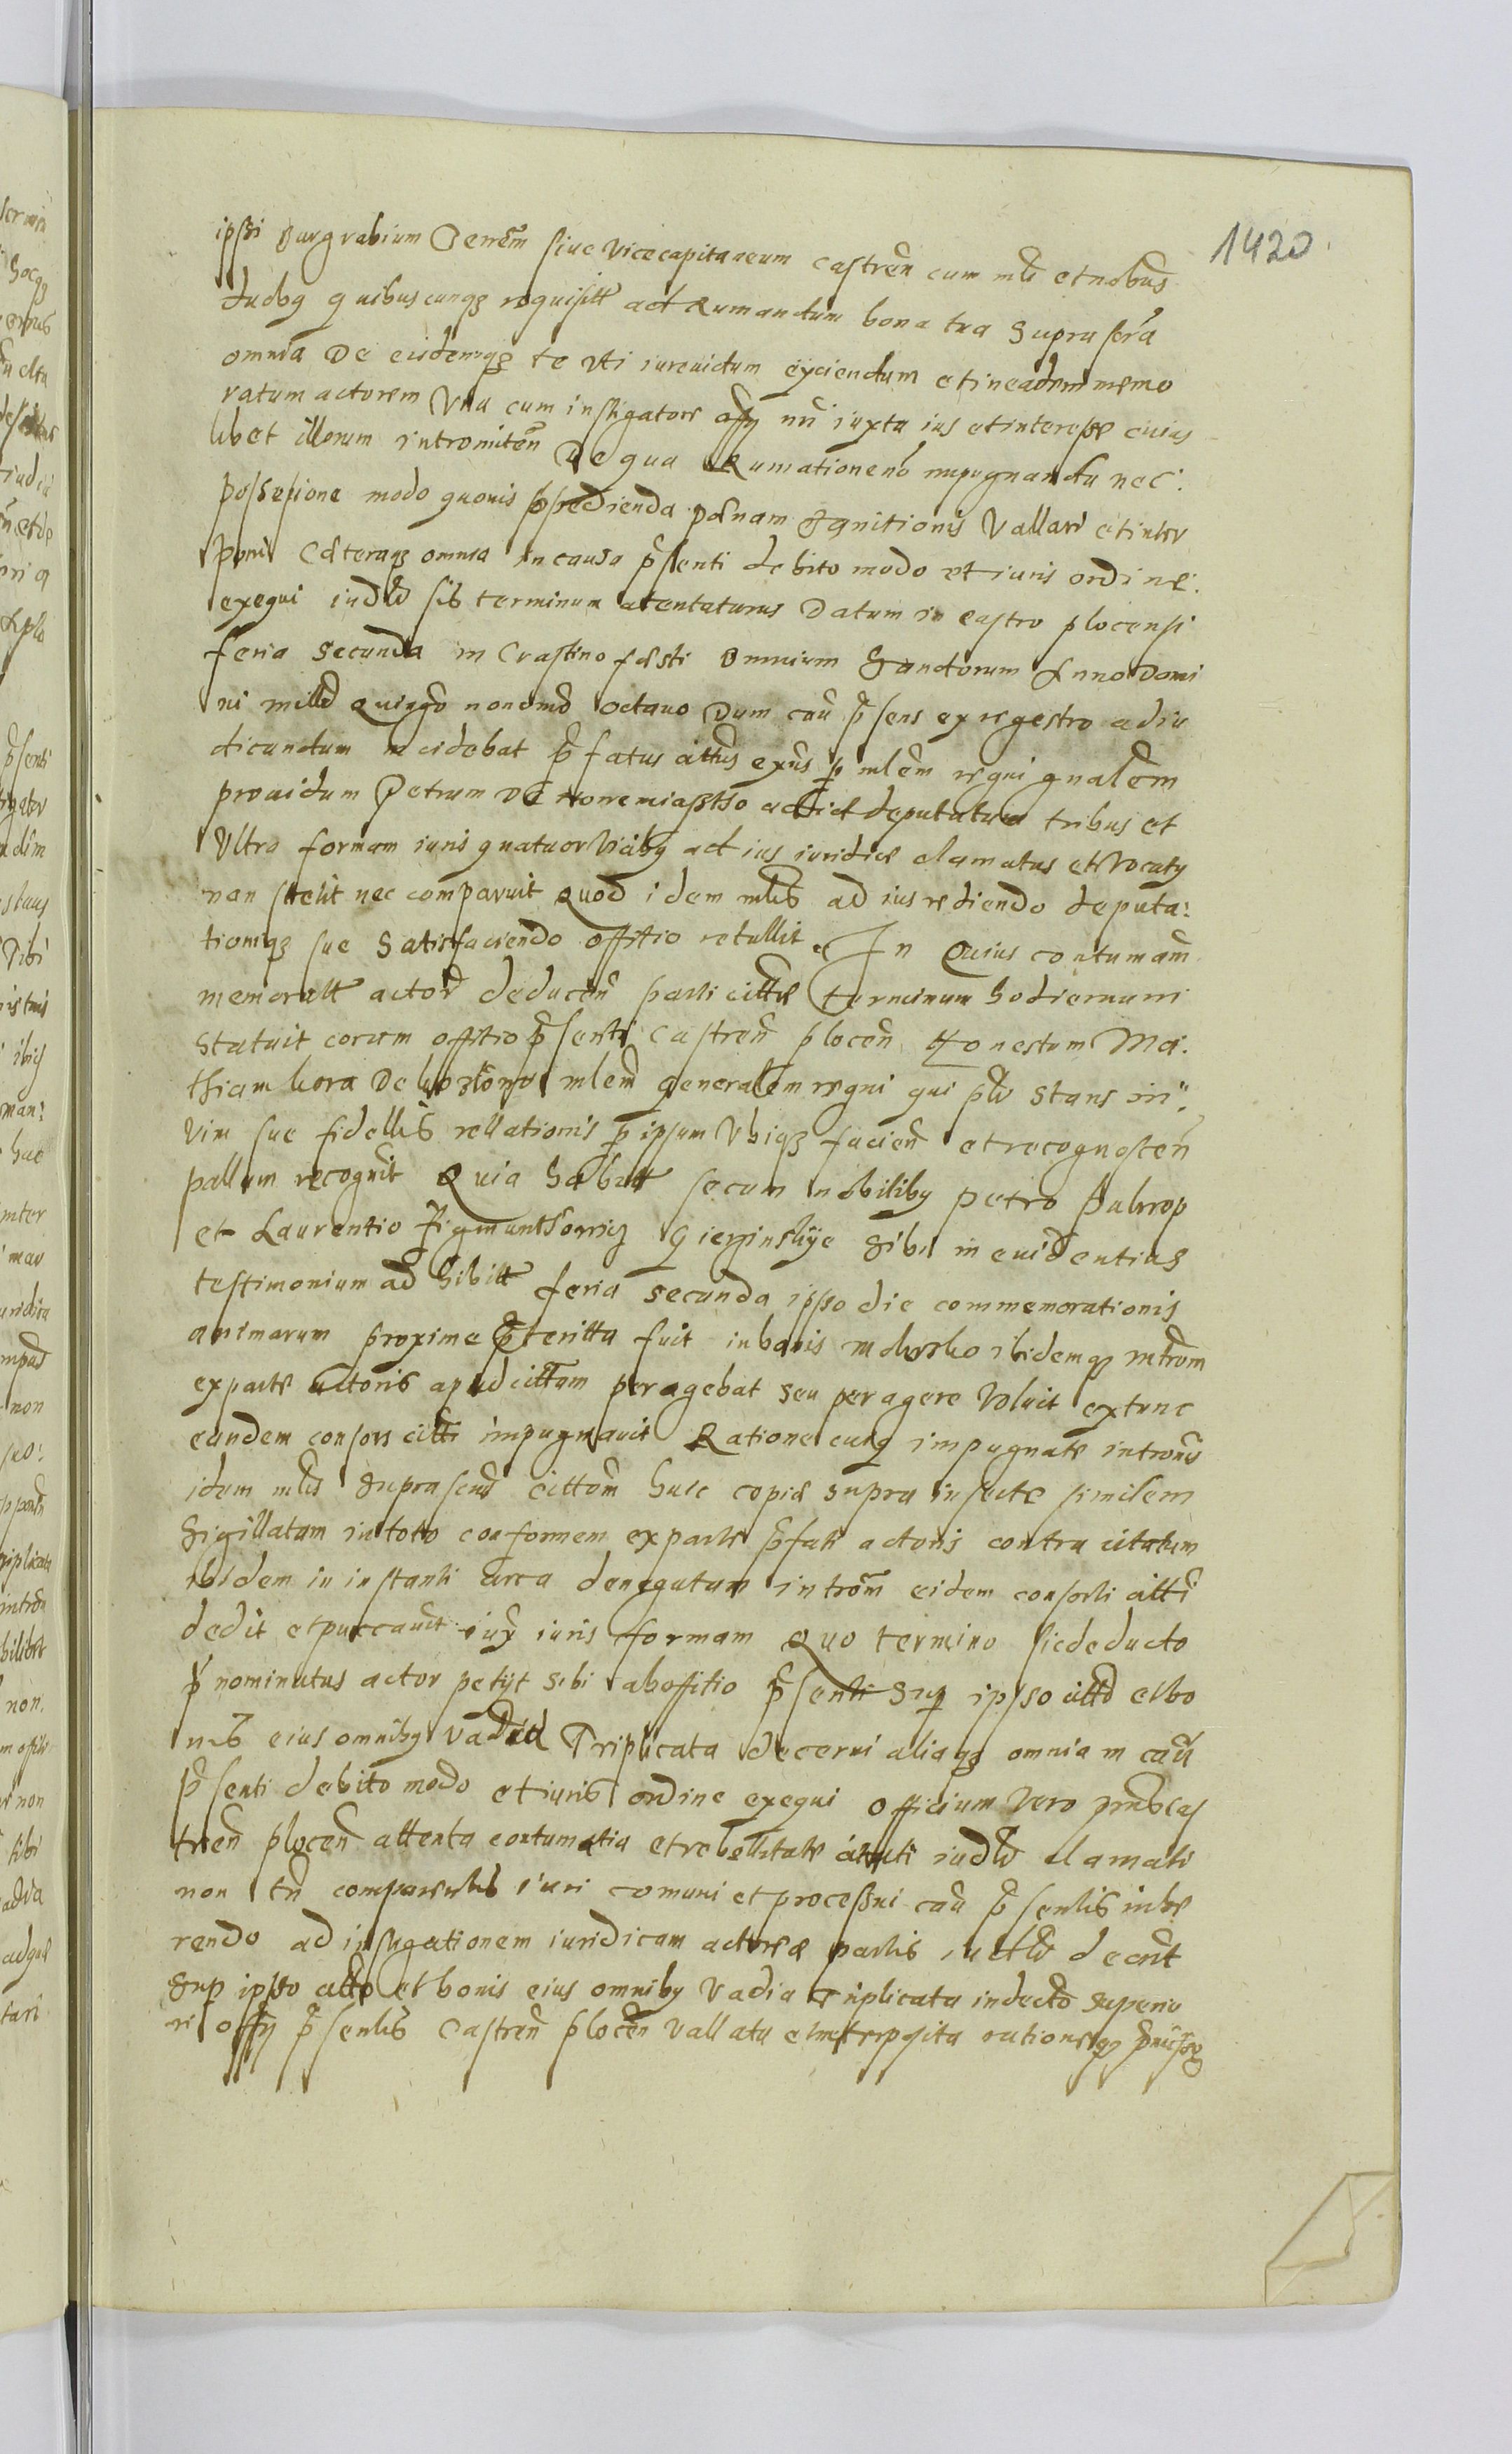 1420
ipsi Burgrabium Seu viceCapitaneum castren cum mli et nobus
duobus quibuscunqz requisitt ad Rumandum bona tua Supra scra
omnia De eisdemqz te uti iurevictum eyciendum et in eadem memo
ratum actorem Una cum instigatore offy nri iuxta ius et interesse cuius
libet illorum intromitten De qua Rumatione no impugnanda nec
possesione modo quovis pnam Banitionis Vallari et inter
poni Caeteraqz omnia in causa psenti debito modo et iuris ordine
exequi iudlr sis terminum atentaturus Datum in castro plocensi
feria secunda in Crastino festi Omnium Sanctorum Anno Domi
ni milld Quingo nonomo octavo Dum cau psens ex regestro ad iu
dicandum incidebat pfatus cittus exns p mlem regni gnalem
providum Petrum De ad id deputatum tribus et
Ultra formam iuris quatuor vicibus ad ius iuridice clamatus et Vocatus
non stetit nec comparuit Quod idem mlis ad ius rediendo deputa
tioniqz sue Satisfaciendo offitio retullit. In Quius contumam
memoratt actor deducen parti citte terminum hodiernum
statuit coram offitio psenti Castren plocen Honestum Ma
thiam kora De mlem generalem regni qui plr stans in
vim sue fidellis rellationis p ipsum Ubiqz facien et recognoscen
pallam recognit Quia habitt secum nobilibus petro
et Laurentio sibi in evidentius
testimonium ad hibitt feria secunda ipso die commemorationis
animarum proxime pteritta fuit in bonis ibidemqz introm
ex parte actoris apud cittum peragebat seu peragere voluit extunc
eundem consors citti impugnavit Ratione cuius impugnate intromis
idem mlis Suprascrus cittom huic copie supra inserte similem
Sigillatam in toto conformem ex parte pfati actoris contra citatum
ibidem in instanti circa denegatam introm eidem consorti citti
dedit et iux iuris formam Quo termino sic deducto
p nominatus actor petyt sibi ab offitio psenti Sup ipso citto et bo
nis eius omnibus vadia Triplicata decerni aliaqz omnia in cau
psenti debito modo et iuris ordine exequi Officium vero pns cas
tren plocen attenta contumatia et rebellitate citati iudlr clamati
non tn comparentis iuri comuni et processui cau psentis inhe
rendo ad instigationem iuridicam actoree partis iudlr decrit
Sup ipso citto et bonis eius omnibus vadia triplicata in dicto superiu
ri offy psentis Castren plocen vallata et interposita rationeqz